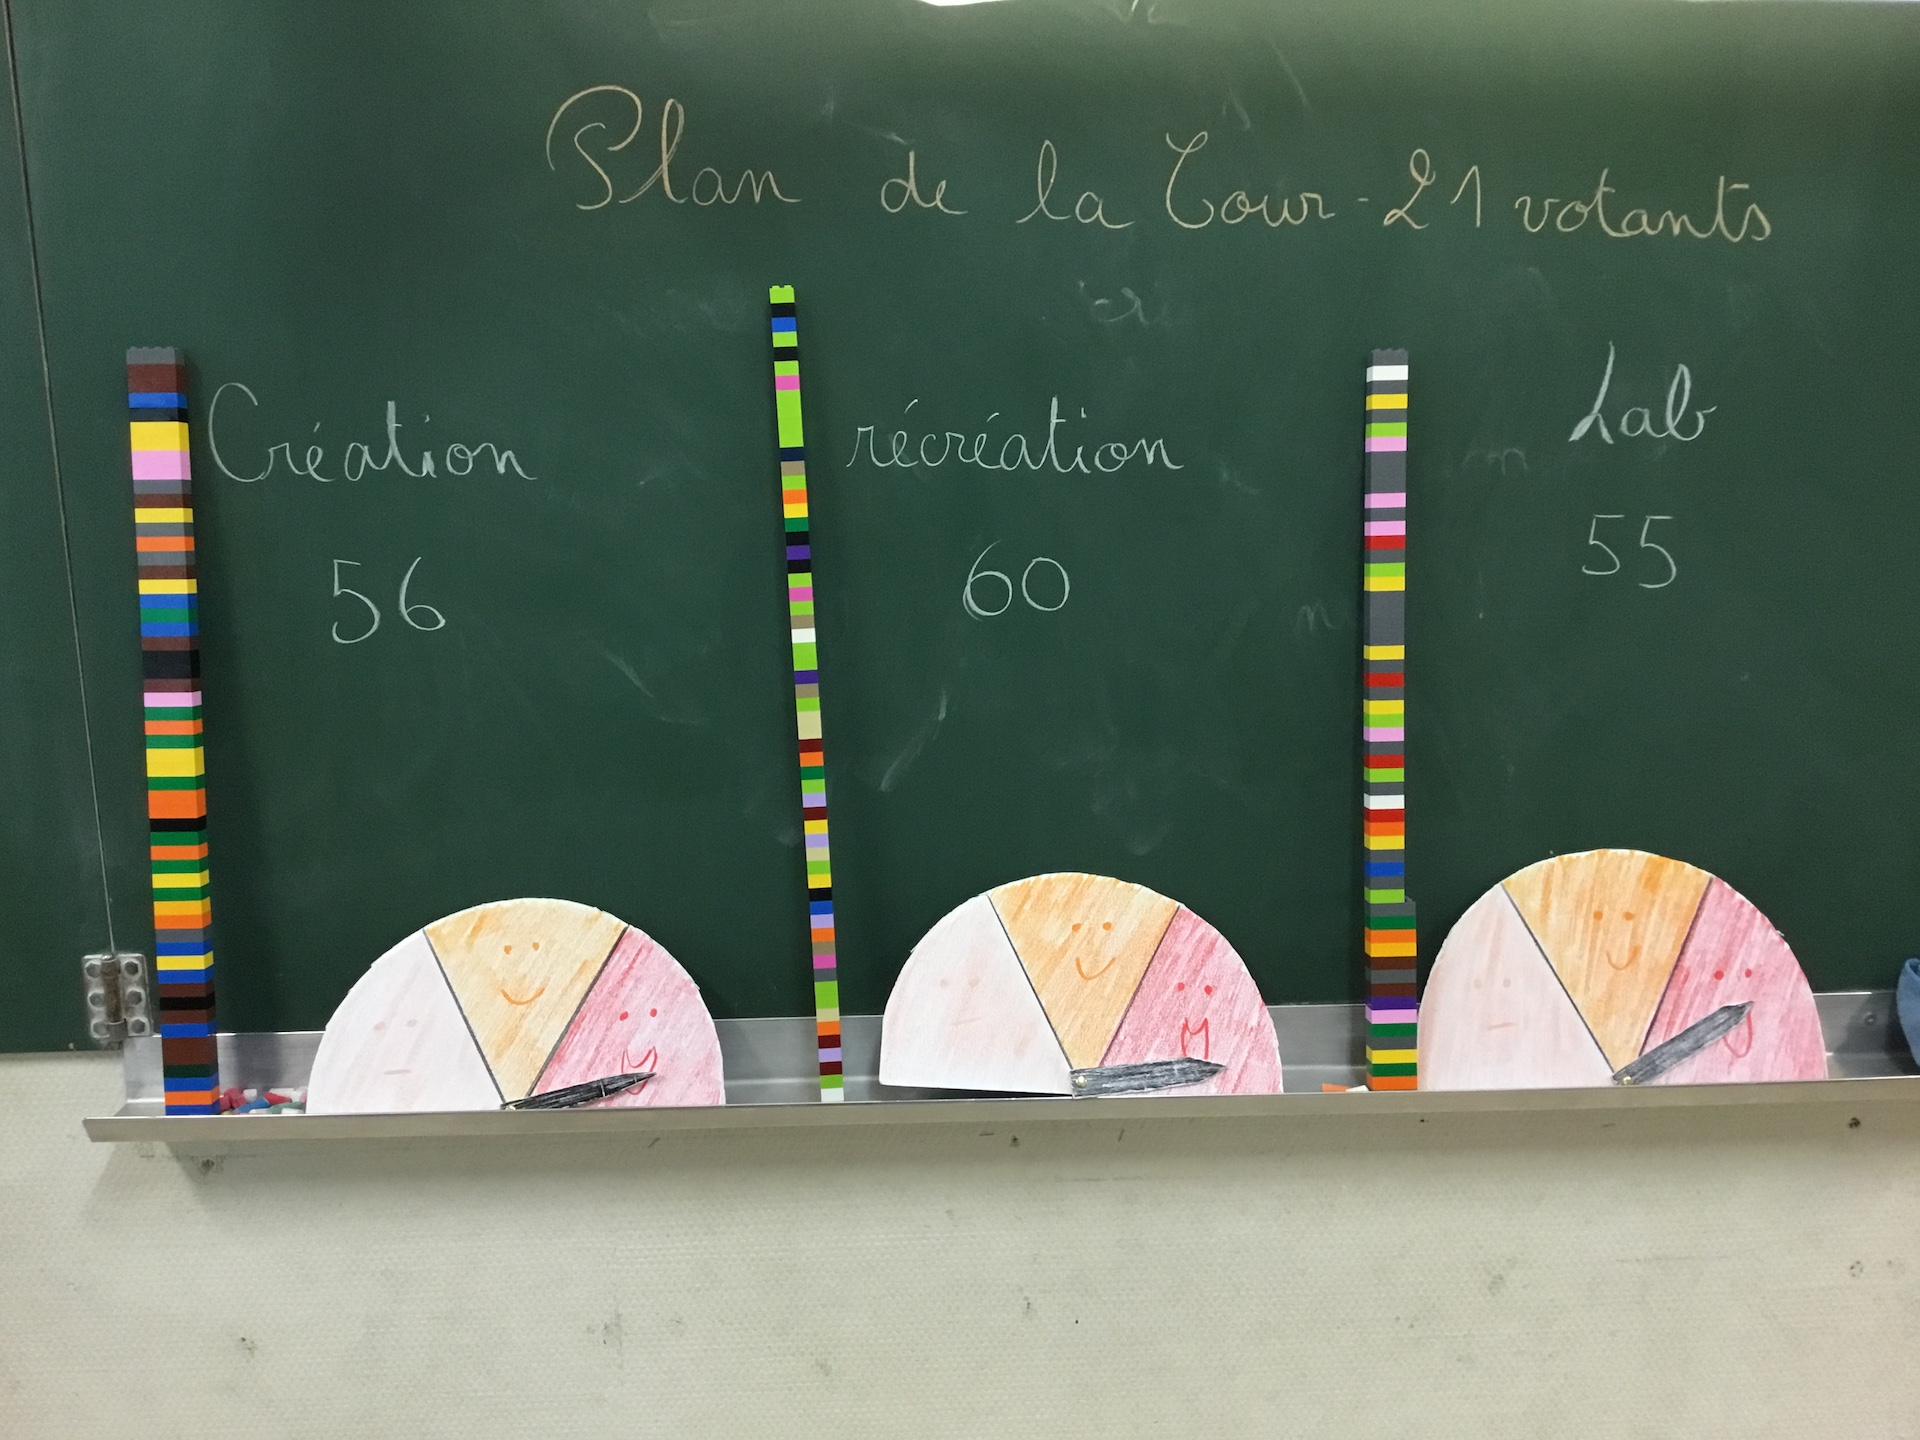 Plan de la Cour - 21 votants
Création
56
récréation
60
Lab
55